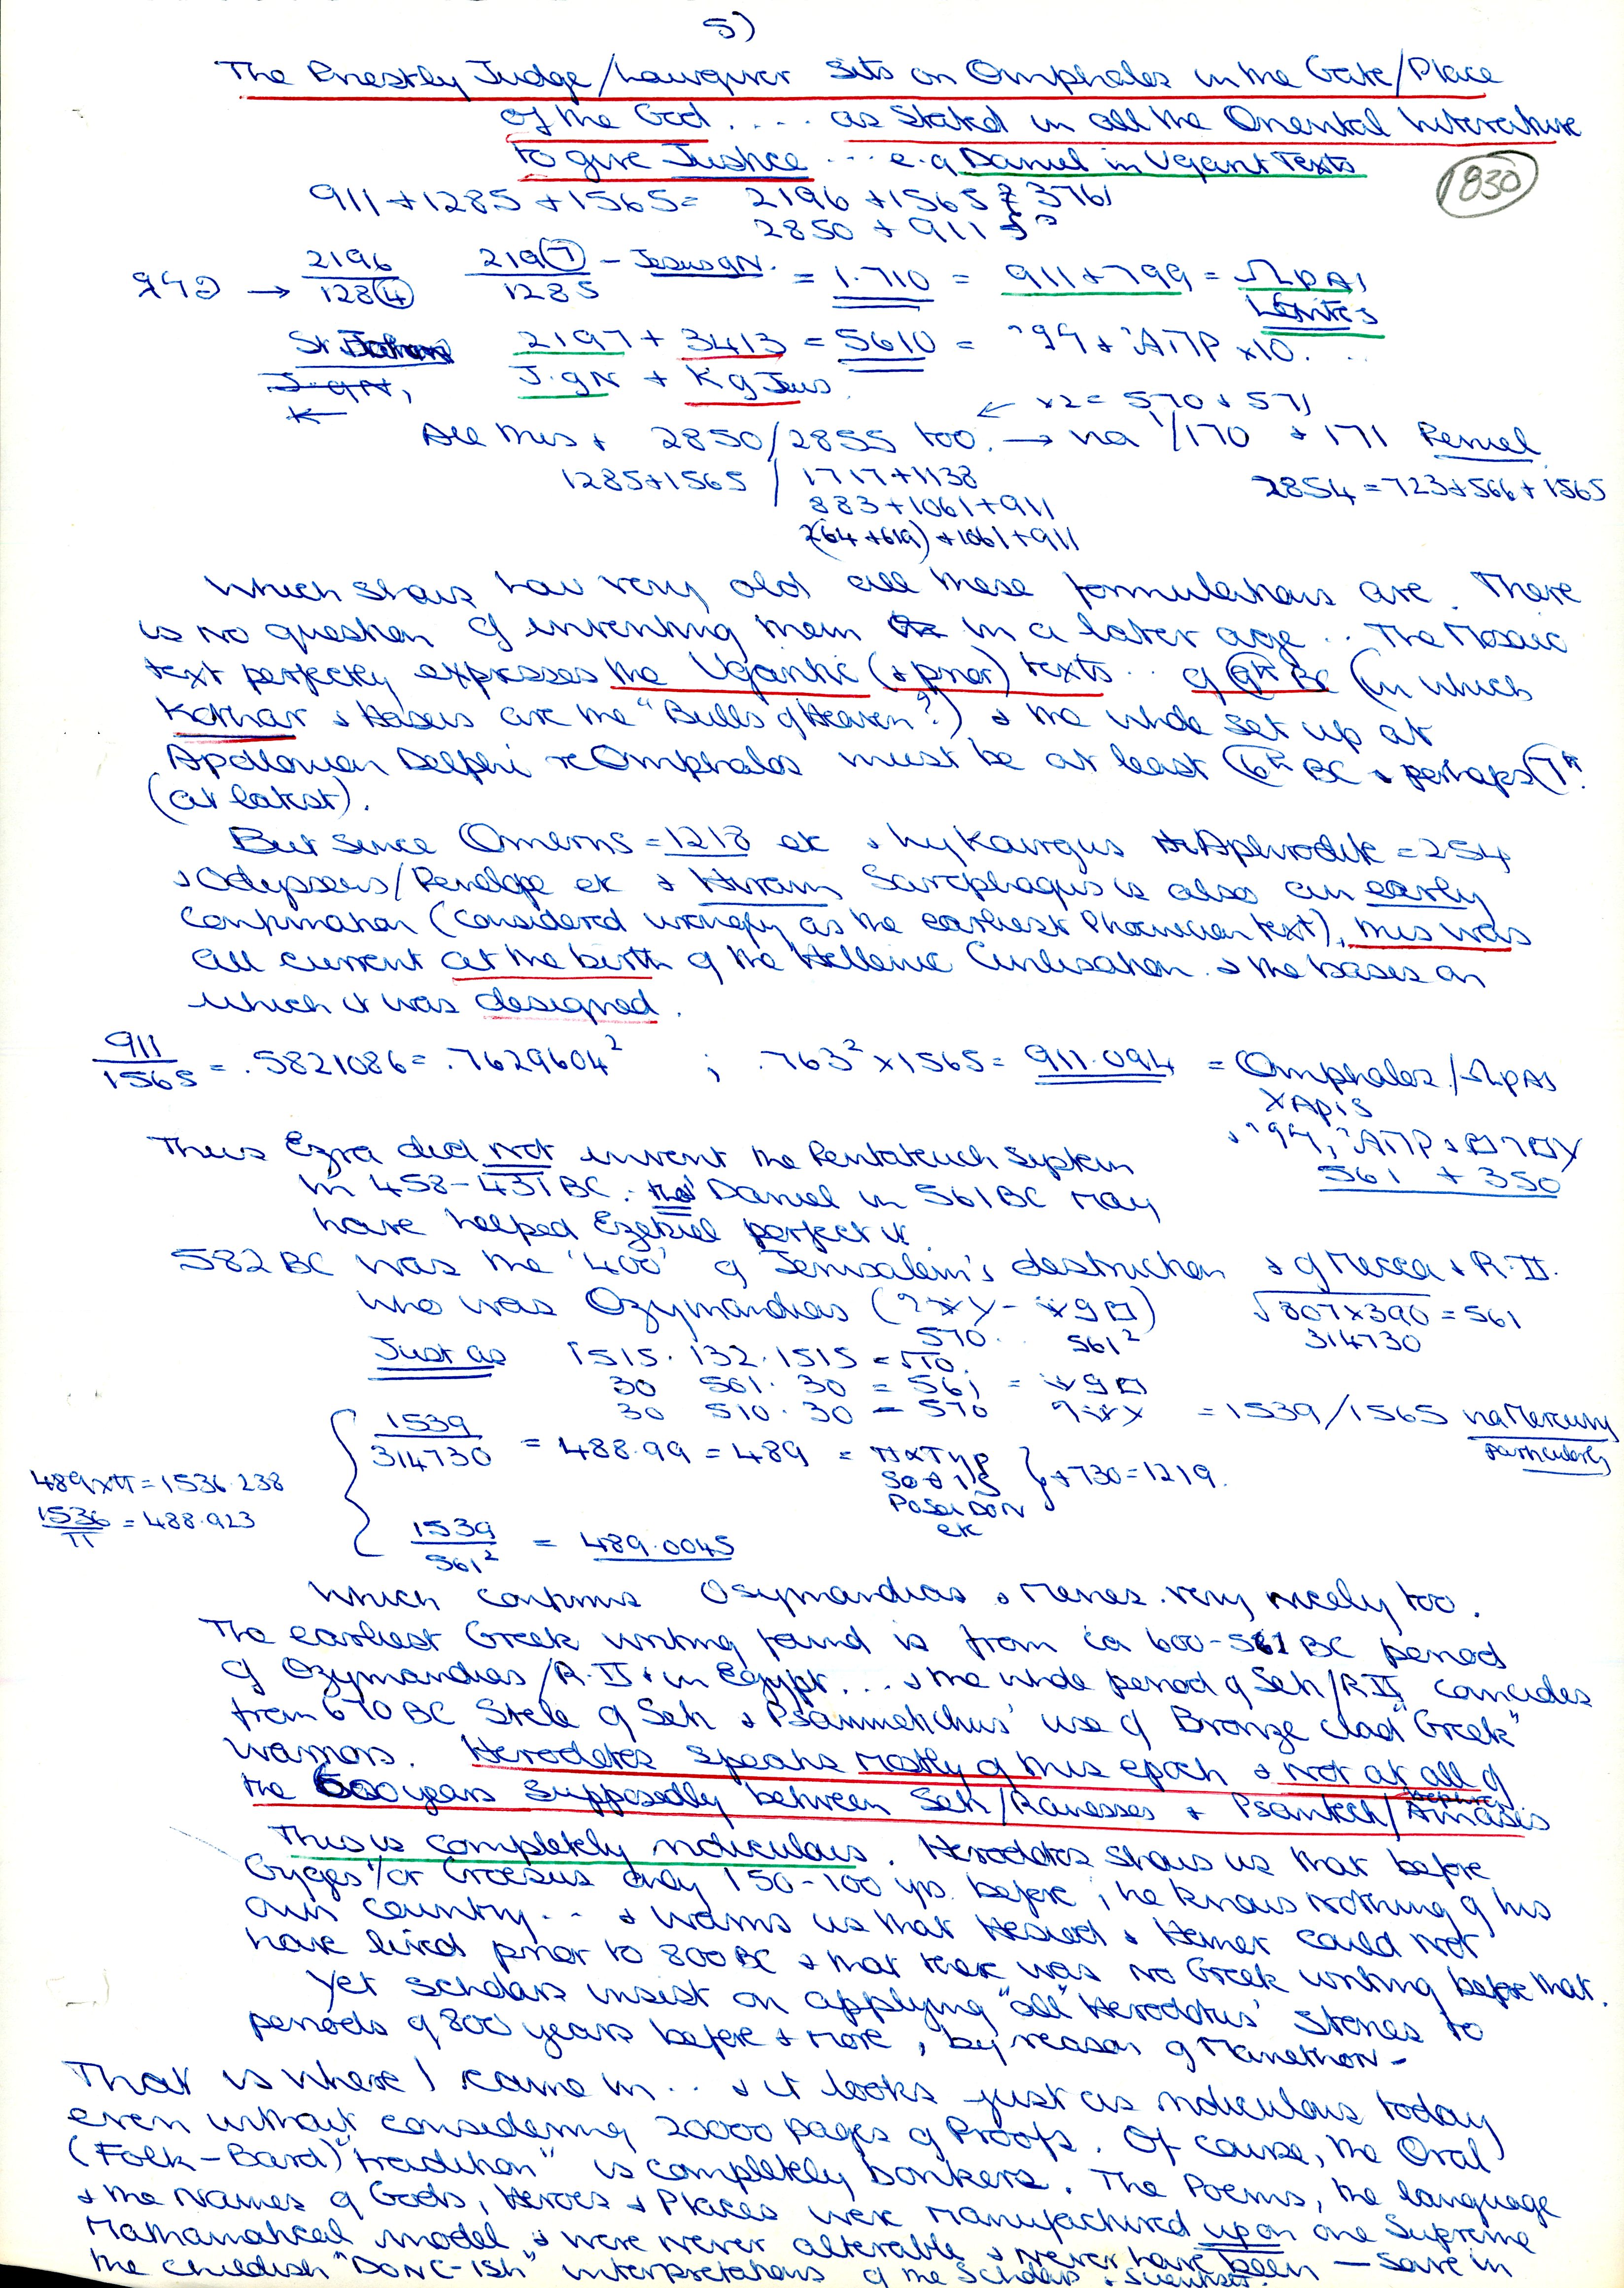 5)
The Priestly Judge/Lawgiver Sits on Omphalos in the Gate/Place
of the God .... as Stated in all the Oriental Literature
to give Justice ... e.g Daniel in Ugarit Texts
1830
911+1285+1565= 2196+1565 } 3761
2850 + 911
→ 2196/1284 219(7)/1285 - Jesus of N. = 1.710 = 911+799 = ΩρΑι
Leontes
2197 + 3413 = 5610 = x10. ..
J. of N + K of Jews
← x2 = 570 & 571
All this + 2850/2855 too. → via 1/170 & 171 Penuel
1285+1565 / 1717+1138 2854 = 723+566+1565
883+1061+911
2(64+619)+1061+911
Which shows how very old all these formulations are. There
is no question of inventing them in a later age .. The Mosaic
text perfectly expresses the Ugaritic (& prior) texts .. of 9th BC (in which
Kothar & Hasis are the "Bulls of Heaven"?) & the whole set up at
Apollonian Delphi re Omphalos must be at least 6th BC & perhaps 7th
(at latest).
But since Omeros = 1218 etc & Lykourgus Aphrodite = 254
& Odysseus/Penelope etc & Hirams Sarcophagus is also an early
Confirmation (considered wrongly as the earliest Phoenician text), this was
all current at the birth of the Hellenic Civilisation & the bases on
which it was designed.
911/1565 = .5821086 = .7629604² ; .763² x 1565 = 911.094 = Omphalos/ΩρΑι
XApis
561 + 350
Thus Ezra did not invent the Pentateuch System
in 458-431 BC. Daniel in 561 BC may
have helped Ezekiel perfect it.
582 BC was the '400' of Jerusalem's destruction & of Mecca & R.II.
who was Ozymandias √807x390 = 561
570.. 561² 314730
Just as 1515.132.1515 =
30 501.30 = 561 =
30 510.30 = 570 = 1539/1565 via Mercury
particularly
1539/314730 = 488.99 = 489 = ΠΛΤΥΡ
Sothis
Poseidon
etc
} +730=1219.
489xπ=1536.238
1536/π = 488.923
1539/561² = 489.0045
Which confirms Osymandias & Menes very nicely too.
The earliest Greek writing found is from ca 600-561 BC period
of Ozymandias/R.II & in Egypt... & the whole period of Seti/R.II coincides
from 670 BC Stele of Seti & Psammetichus' use of Bronze clad "Greek"
warriors. Herodotos speaks mostly of this epoch & not at all of
the 600 years supposedly between Seti/Ramesses & Psamtech/Amasis
This is completely ridiculous. Herodotos shows us that before
Gyges &/or Croesus only 150-100 yrs. before, he knows nothing of his
own country... & warns us that Hesiod & Homer could not
have lived prior to 800 BC & that there was no Greek writing before that.
Yet scholars insist on applying "all" Herodotus' Stories to
periods of 800 years before & more, by reason of Manethon -
That is where I came in.. & it looks just as ridiculous today
even without considering 20000 pages of Proofs. Of course, the Oral
(Folk-Bard) "tradition" is completely bonkers. The Poems, the language
& the Names of Gods, Heroes & Places were manufactured upon one Supreme
Mathematical model & were never alterable & never have been — save in
the childish "DONC-ISH" interpretations of the Scholars & Scientists.